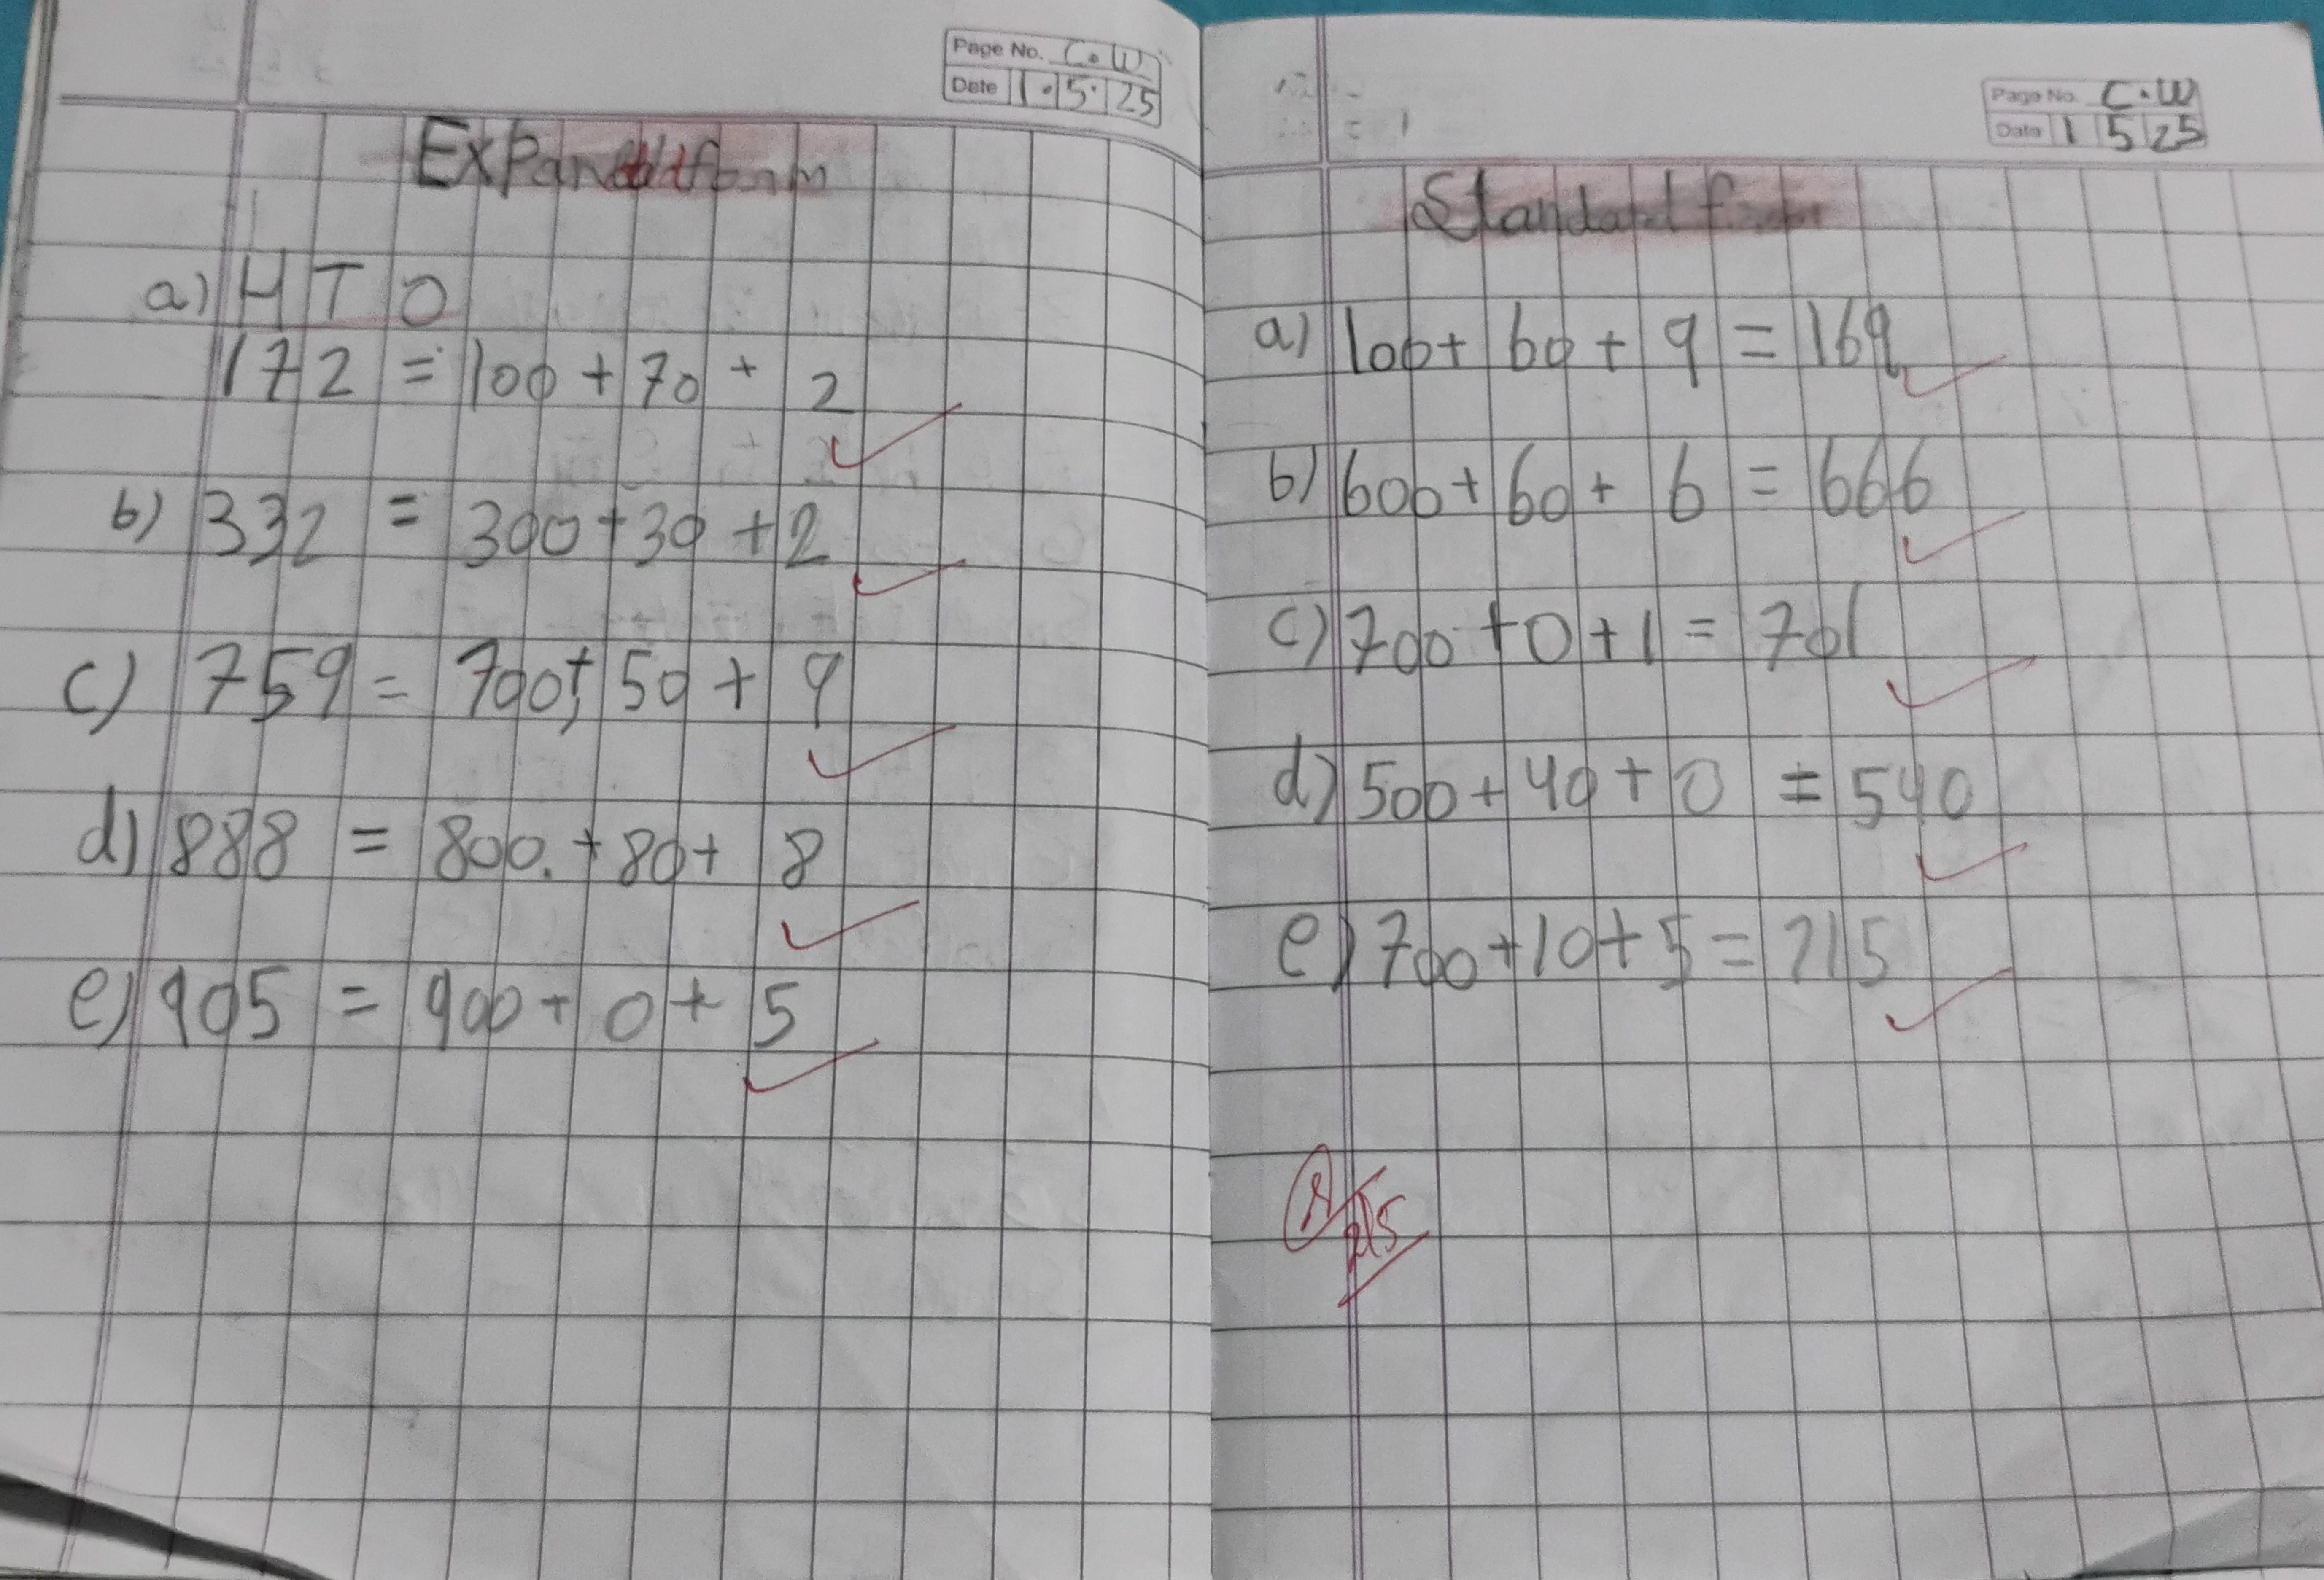 Page No. C.W
Date 1.5.25
a) H T O
172 = 100 + 70 + 2
b) 332 = 300 + 30 + 2
c) 759 = 700 + 50 + 9
d) 888 = 800. + 80 + 8
e) 905 = 900 + 0 + 5
Page No. C.W
Date 1 5 25
Standard
a) 100 + 60 + 9 = 169
b) 600 + 60 + 6 = 666
c) 700 + 0 + 1 = 701
d) 500 + 40 + 0 = 540
e) 700 + 10 + 5 = 715